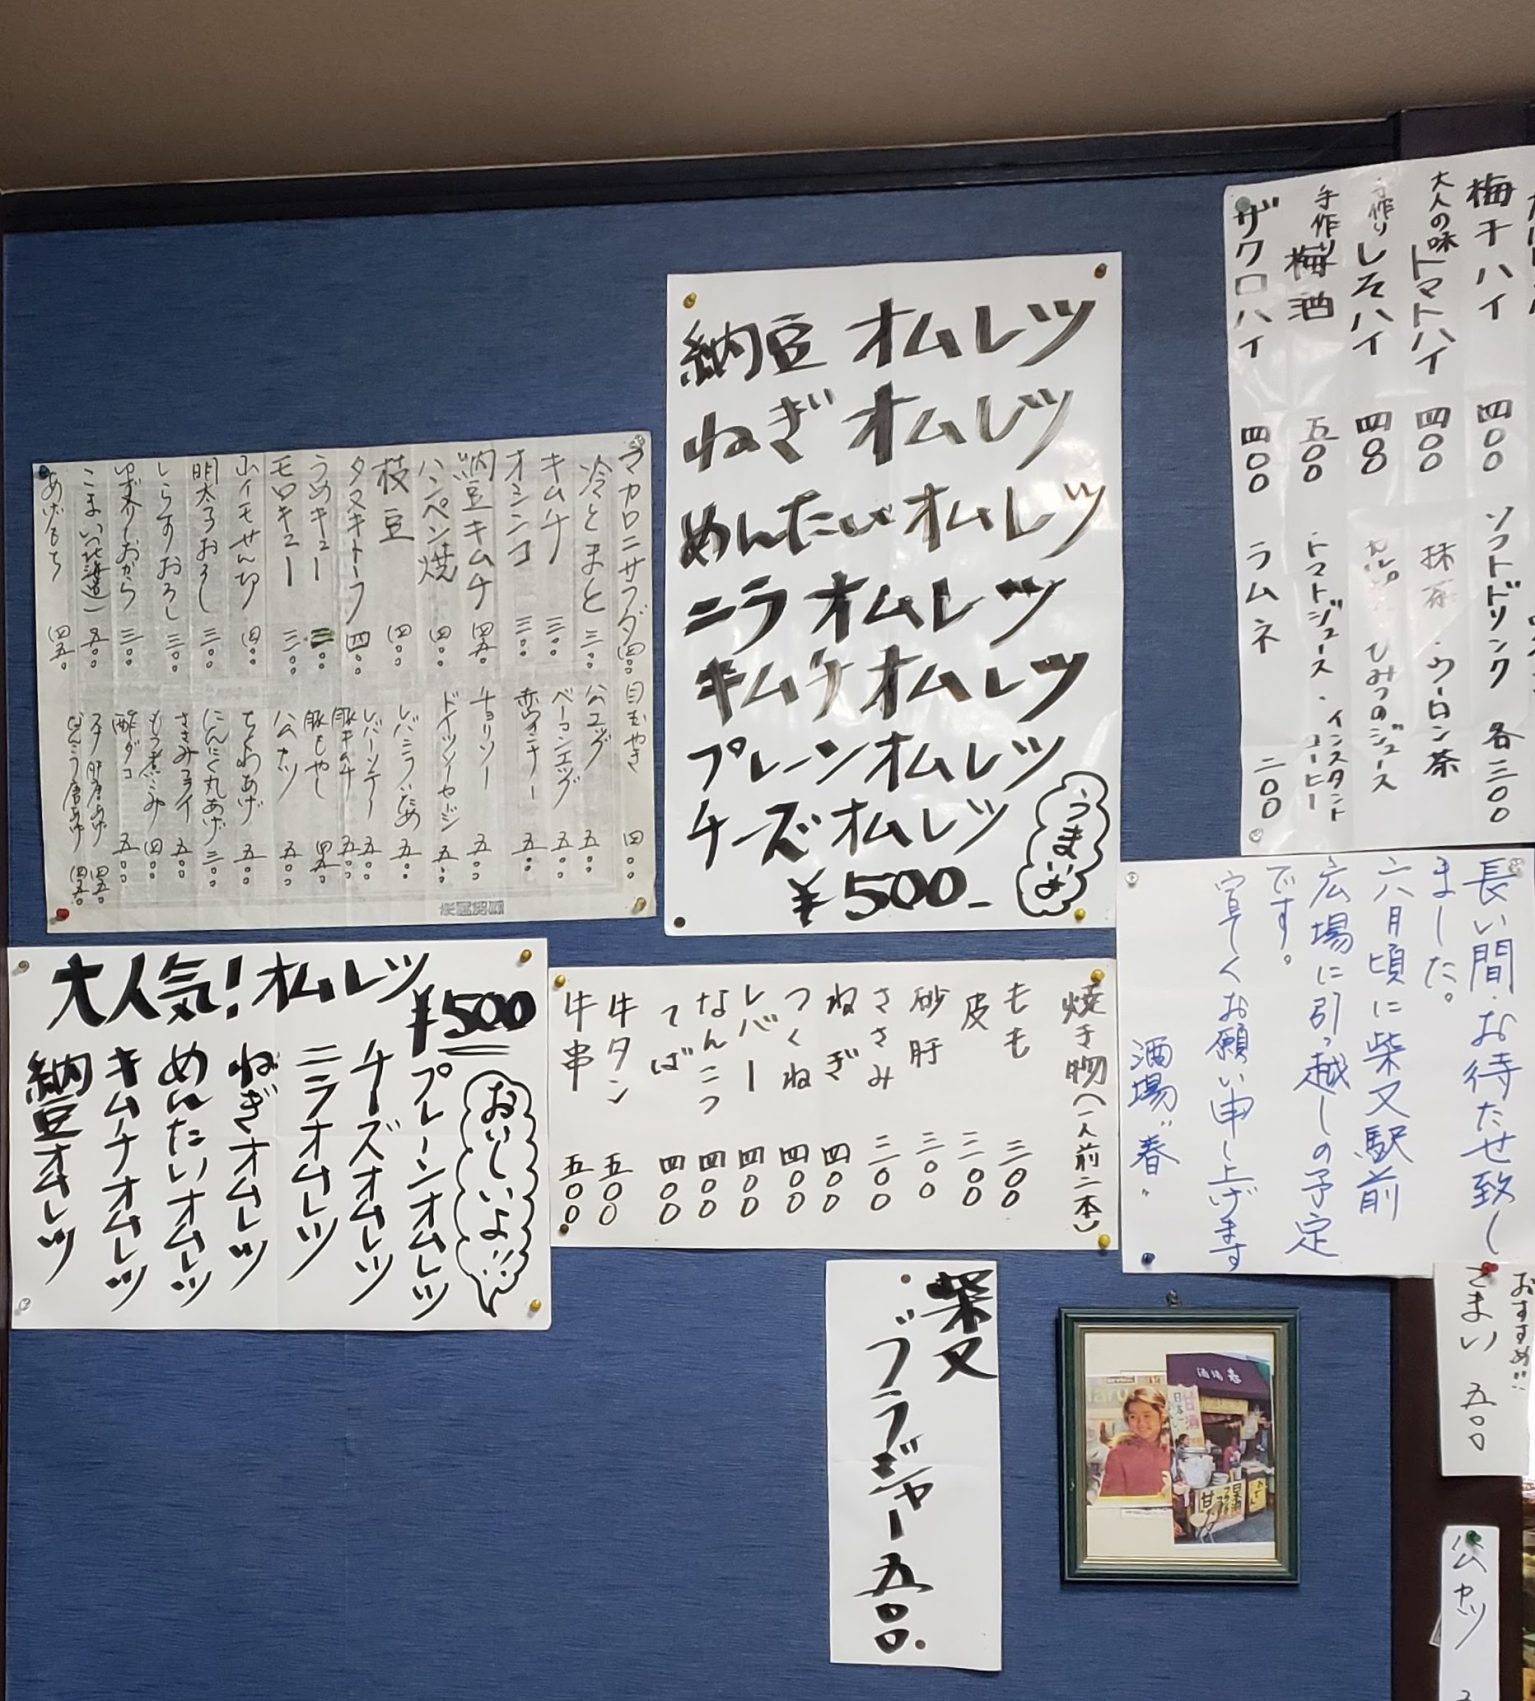 納豆オムレツ
ねぎオムレツ
めんたいオムレツ
ニラオムレツ
キムチオムレツ
プレーンオムレツ
チーズオムレツ
¥500-
うまいよ
梅干ハイ 四〇〇
大人の味 トマトハイ 四〇〇
手作り しそハイ 四〇〇
手作り 梅酒 五〇〇
ザクロハイ 四〇〇
ソフトドリンク 各三〇〇
抹茶・ウーロン茶
ひみつのジュース
・トマトジュース・インスタントコーヒー
ラムネ 二〇〇
マカロニサラダ 四〇〇
冷とまと 三〇〇
キムチ 三〇〇
オシンコ 三〇〇
納豆キムチ 四五〇
ハンペン焼 四〇〇
枝豆 四〇〇
タヌキトーフ 四〇〇
うめキュー 三〇〇
モロキュー 三〇〇
山イモせん切 四〇〇
明太子おろし 三〇〇
しらすおろし 三〇〇
おから 三〇〇
こまい(北海道) 五〇〇
あげもち 四五〇
目玉やき 四〇〇
ハムエッグ 五〇〇
ベーコンエッグ 五〇〇
五〇〇
チョリソー 五〇〇
ドイツソーセージ 五〇〇
レバニラいため 五〇〇
レバーソテー 五〇〇
豚キムチ 五〇〇
豚もやし 四五〇
ハムカツ 五〇〇
ちくわあげ 五〇〇
にんにく丸あげ 三〇〇
ささみフライ 五〇〇
もつ煮こみ 四〇〇
酢ダコ 五〇〇
唐あげ 四五〇
唐あげ 四五〇
大人気!オムレツ
¥500
プレーンオムレツ
チーズオムレツ
ニラオムレツ
ねぎオムレツ
めんたいオムレツ
キムチオムレツ
納豆オムレツ
おいしいよ!!
焼き物(一人前二本)
もも 三〇〇
皮 三〇〇
砂肝 三〇〇
ささみ 三〇〇
ねぎ 四〇〇
つくね 四〇〇
レバー 四〇〇
なんこつ 四〇〇
てば 四〇〇
牛タン 五〇〇
牛串 五〇〇
長い間・お待たせ致し
ました。
六月頃に柴又駅前
広場に引っ越しの予定
です。
宜しくお願い申し上げます
酒場"春"
柴又
ブラジャー五〇〇.
おすすめ!!
こまい 五〇〇
ハムカツ
酒場 春